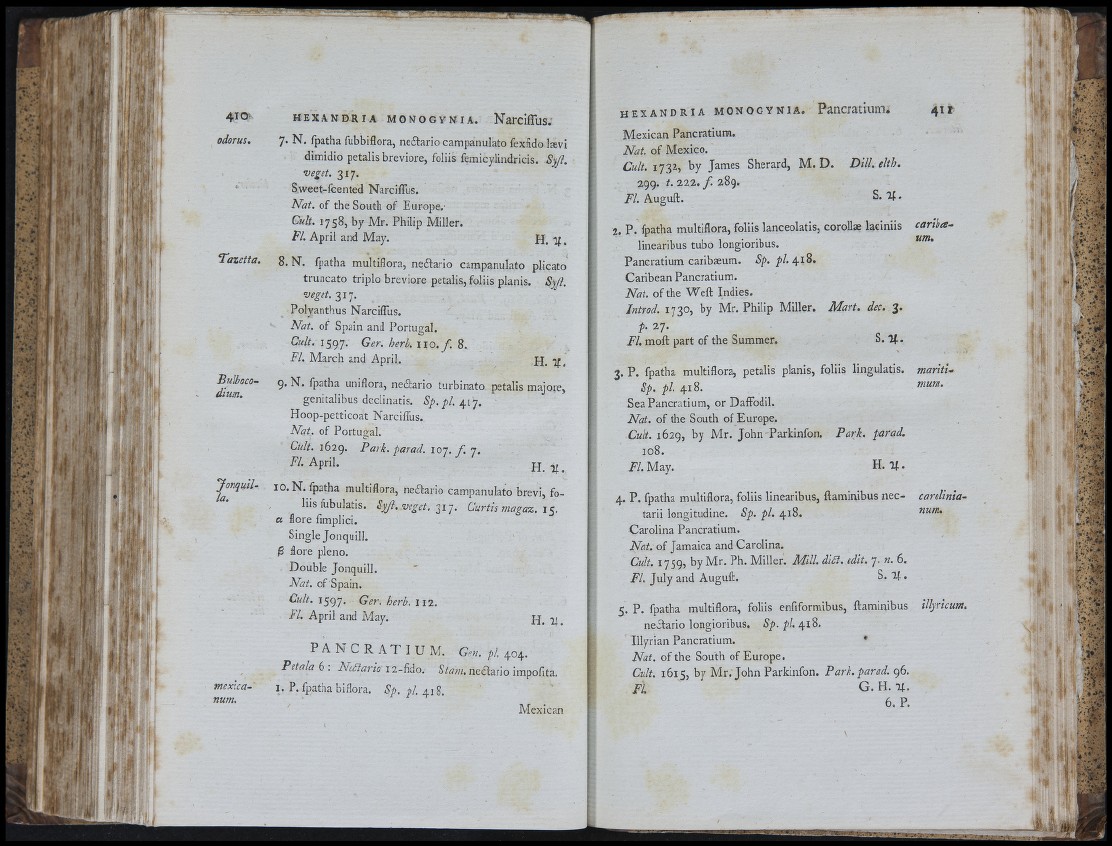 410 HEXANDRIA MONOGYNIA. Narciſſus.
odorus. 7. N. ſpatha ſubbiflora, nectario campanulato ſexfido lævi
dimidio petalis breviore, foliis ſemicylindricis. Syſt.
veget. 317.
Sweet-ſcented Narciſſus.
Nat. of the South of Europe.
Cult. 1758, by Mr. Philip Miller.
Fl. April and May. H. ♃.
Tazetta. 8. N. ſpatha multiflora, nectario campanulato plicato
truncato triplo breviore petalis, foliis planis. Syſt.
veget. 317.
Polyanthus Narciſſus.
Nat. of Spain and Portugal.
Cult. 1597. Ger. herb. 110. f. 8.
Fl. March and April. H. ♃.
Bulboco-
dium. 9. N. ſpatha uniflora, nectario turbinato petalis majore,
genitalibus declinatis. Sp. pl. 417.
Hoop-petticoat Narciſſus.
Nat. of Portugal.
Cult. 1629. Park. parad. 107. f. 7.
Fl. April. H. ♃.
Jonquil-
la. 10. N. ſpatha multiflora, nectario campanulato brevi, fo-
liis ſubulatis. Syſt. veget. 317. Curtis magaz. 15.
α flore ſimplici.
Single Jonquill.
β flore pleno.
Double Jonquill.
Nat. of Spain.
Cult. 1597. Ger. herb. 112.
Fl. April and May. H. ♃.
PANCRATIUM. Gen. pl. 404.
Petala 6: Nectario 12-fido. Stam. nectario impoſita.
mexica-
num. 1. P. ſpatha biflora. Sp. pl. 418.
Mexican
HEXANDRIA MONOGYNIA. Pancratium. 411
Mexican Pancratium.
Nat. of Mexico.
Cult. 1732, by James Sherard, M. D. Dill. elth.
299. t. 222. f. 289.
Fl. Auguſt. S. ♃.
2. P. ſpatha multiflora, foliis lanceolatis, corollæ laciniis caribæ-
linearibus tubo longioribus. um.
Pancratium caribæum. Sp. pl. 418.
Caribean Pancratium.
Nat. of the Weſt Indies.
Introd. 1730, by Mr. Philip Miller. Mart. dec. 3.
p. 27.
Fl. moſt part of the Summer. S. ♃.
3. P. ſpatha multiflora, petalis planis, foliis lingulatis. mariti-
Sp. pl. 418. mum.
Sea Pancratium, or Daffodil.
Nat. of the South of Europe.
Cult. 1629, by Mr. John Parkinſon. Park. parad.
108.
Fl. May. H. ♃.
4. P. ſpatha multiflora, foliis linearibus, ſtaminibus nec- carolinia-
tarii longitudine. Sp. pl. 418. num.
Carolina Pancratium.
Nat. of Jamaica and Carolina.
Cult. 1759, by Mr. Ph. Miller. Mill. dict. edit. 7. n. 6.
Fl. July and Auguſt. S. ♃.
5. P. ſpatha multiflora, foliis enſiformibus, ſtaminibus illyricum.
nectario longioribus. Sp. pl. 418.
Illyrian Pancratium.
Nat. of the South of Europe.
Cult. 1615, by Mr. John Parkinſon. Park. parad. 96.
Fl. G. H. ♃.
6. P.